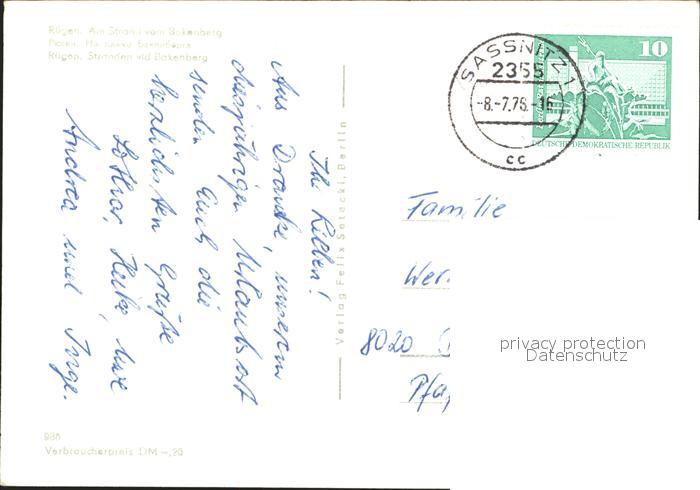 Rügen. Am Strand vom Bakenberg
Rügen. Stranden vid Bakenberg
Ihr Lieben!
Aus Dranske, unserem
diesjährigen Urlaubsort
senden Euch die
herzlichsten Grüße
Lothar, Heike, Uwe
Andrea und Inge.
Verlag Felix Setecki, Berlin
SASSNITZ 1
2355
-8.-7.76.-16
cc
10
DEUTSCHE DEMOKRATISCHE REPUBLIK
Familie
Wer
8020
Pfa
privacy protection
Datenschutz
Verbraucherpreis DM -,20